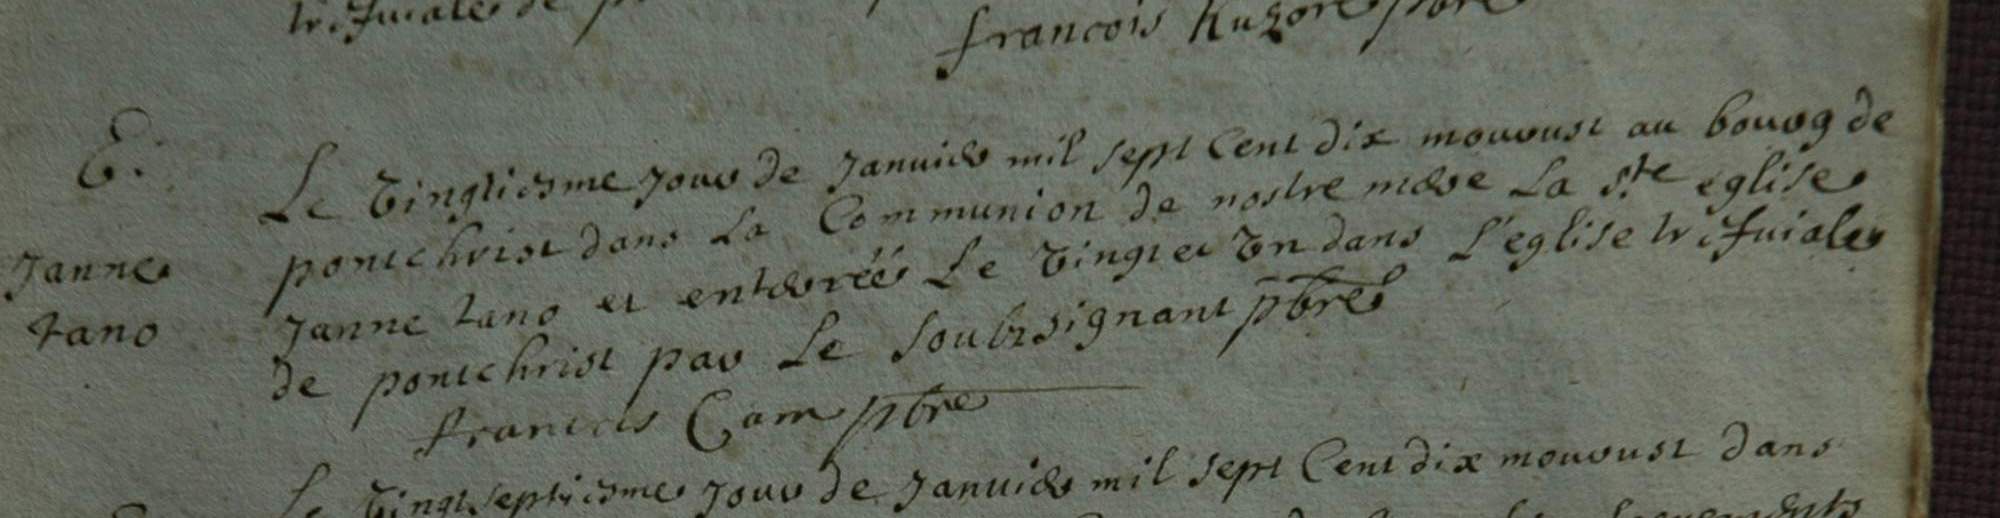 trefvialle de
francois Kuzore pbre
E.
Le vingtiesme jour de janvier mil sept Cent dix mourust au bourg de
pontchrist dans La Communion de nostre mere La Ste eglise
Janne
Janne tano et enterréé Le vingt et un dans L'eglise trefvialle
tano
de pontchrist par Le Soubsignant pbre
francois Cam pbre
Le vingt septiesme jour de janvier mil sept Cent dix mourust dans